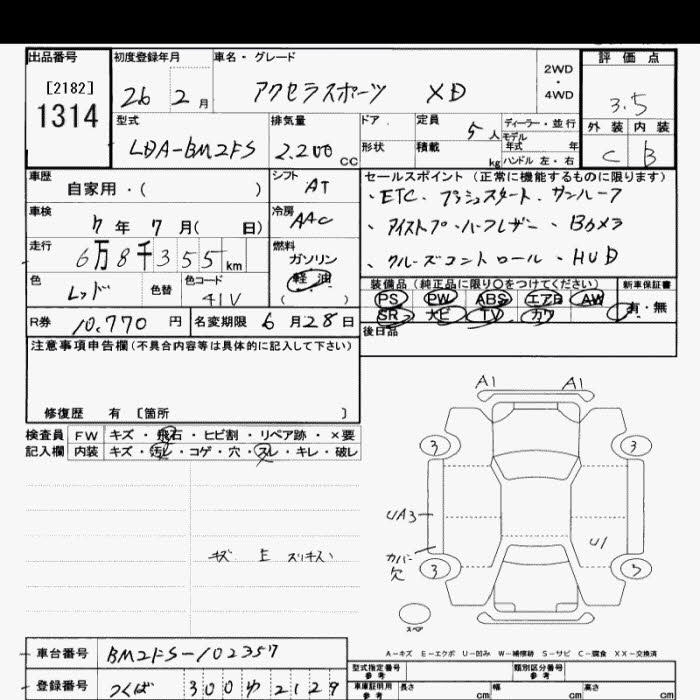 出品番号
[2182]
1314
初度登録年月
26 2月
車名・グレード
アクセラスポーツ XD
2WD
・
4WD
評価点
3.5
外装 内装
C B
型式
LDA-BM2FS
排気量
2.200 CC
ドア
形状
定員
5人
積載
kg
ディーラー・並行
モデル
年式 年
ハンドル 左・右
車歴
自家用・( )
シフト
AT
車検
7年 7月( 日)
冷房
AAC
走行
6万8千355km
燃料
ガソリン
軽油
( )
色
レッド
色替
色コード
41V
R券
10,770円
名変期限 6月28日
セールスポイント(正常に機能するものに限ります)
、ETC、プッシュスタート、サンルーフ
、アイストプ・ハーフレザー、Bカメラ
、クルーズコントロール、HUD
装備品(純正品に限り○をつけてください)
PS PW ABS エアB AW
SR ナビ TV カワ
新車保証書
有・無
後日品
注意事項申告欄(不具合内容等は具体的に記入して下さい)
修復歴 有 [箇所 ]
検査員
記入欄
FW キズ・飛石・ヒビ割・リペア跡・×要
内装 キズ・汚レ・コゲ・穴・スレ・キレ・破レ
キズ E スリキズ
A1 A1
3 3
UA3
U1
カバー
欠
3 3
スペア
A-キズ E-エクボ U-凹み W-補修跡 S-サビ C-腐食 XX-交換済
車台番号
BM2FS-102357
登録番号
つくば 300 ゆ 2129
型式指定番号
参考
類別区分番号
参考
車庫証明用
参考
長さ cm
幅 cm
高さ cm